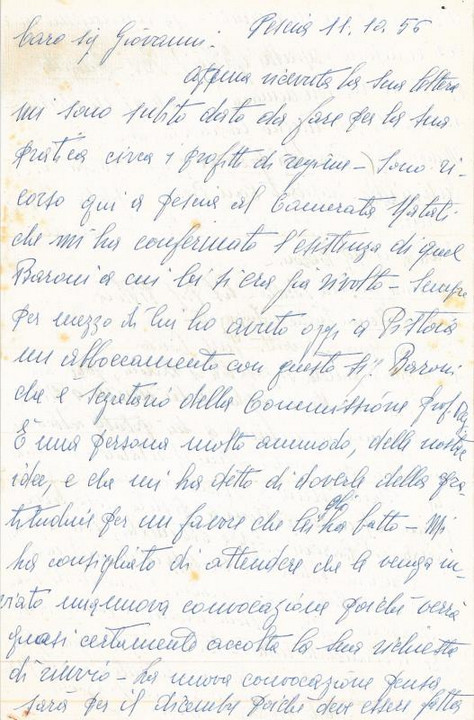 Caro Sig Giovanni: Pescia 11.10.56
appena ricevuta la Sua lettera
mi sono subito dato da fare per la sua
pratica circa i profitti di regime - Sono ri-
corso qui a Pescia al Camerata
che mi ha confermato l'esistenza di quel
Baroni a cui lei si era già rivolto - Sempre
per mezzo di lui ho avuto oggi a Pistoia
un abboccamento con questo Sig. Baroni
che è segretario della Commissione
È una persona molto ammodo, delle nostre
idee, e che mi ha detto di doverle della gra
titudine per un favore che lei gli ha fatto - Mi
ha consigliato di attendere che le venga in-
viato una nuova convocazione poiché verrà
quasi certamente accolta la Sua richiesta
di rinvio - La nuova convocazione pensa
sarà per il dicembre poiché deve essere fatta